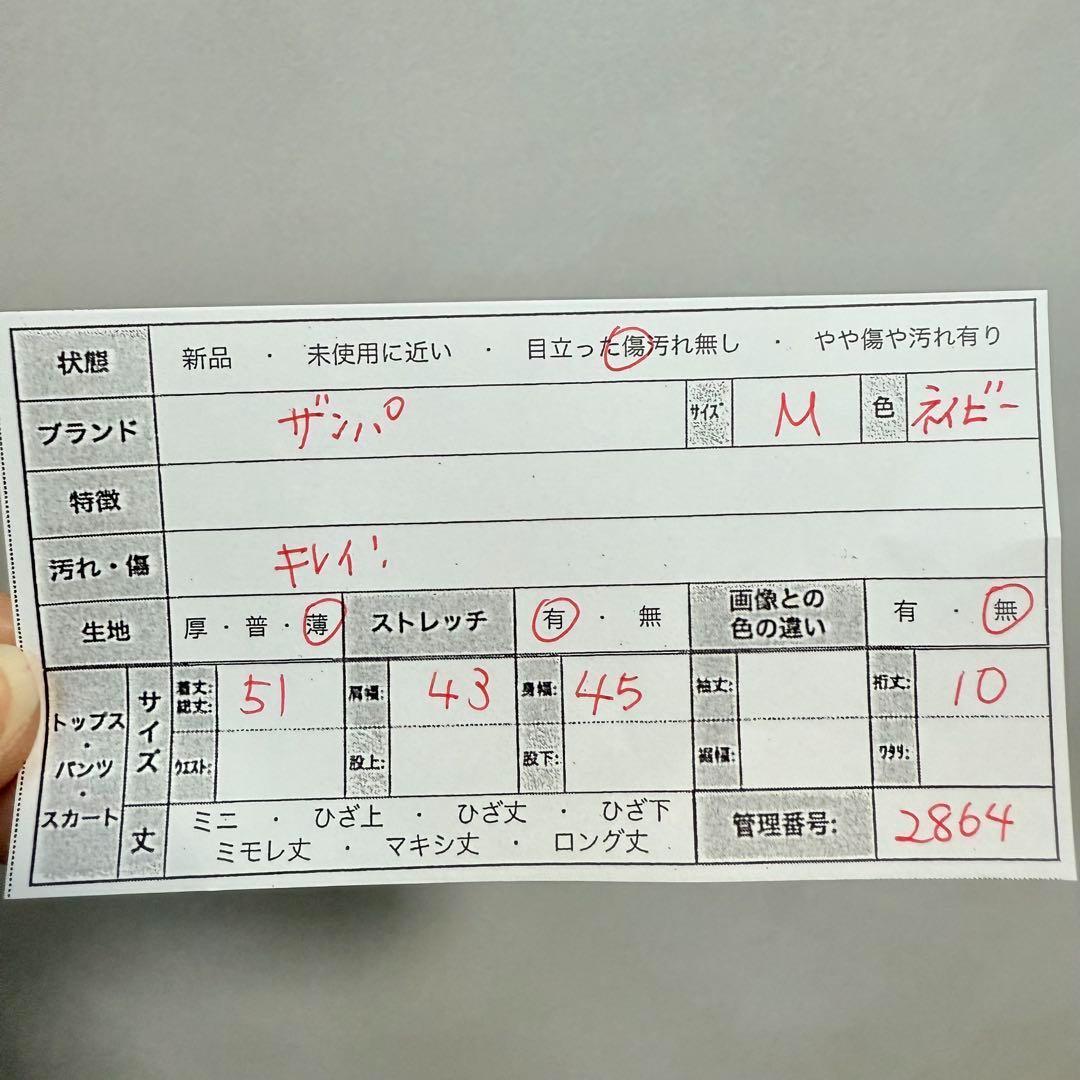 状態 新品 ・ 未使用に近い ・ 目立った傷汚れ無し ・ やや傷や汚れ有り
ブランド ザンパ サイズ M 色 ネイビー
特徴
汚れ・傷 キレイ!
生地 厚・普・薄 ストレッチ 有・無 画像との色の違い 有・無
トップス・パンツ・スカート サイズ 着丈:総丈: 51 肩幅: 43 身幅: 45 袖丈: 裄丈: 10
ウエスト: 股上: 股下: 裾幅: ワタリ:
丈 ミニ ・ ひざ上 ・ ひざ丈 ・ ひざ下 管理番号: 2864
ミモレ丈 ・ マキシ丈 ・ ロング丈